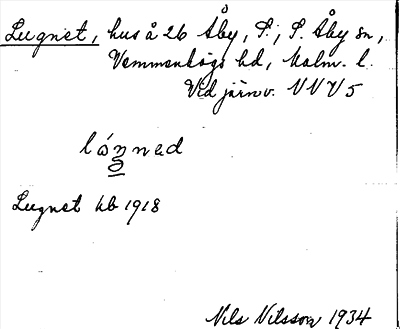 Lugnet, hus å 26 Åby, S:, S. Åby sn,
Vemmenhögs hd, Malm. l.
Vid järnv. NVV5
lónnad
Lugnet kb 1918
Nils Nilsson 1934